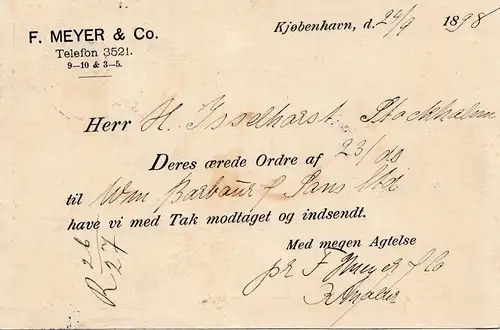 F. MEYER & Co.
Telefon 3521.
9–10 & 3–5.
Kjøbenhavn, d. 24/9 1898
Herr H. Isselhorst. Stockholm
Deres ærede Ordre af 23/ds
til Wm Barbour & Sons Ltd
have vi med Tak modtaget og indsendt.
Med megen Agtelse
pr F Meyer & Co
R 26
27